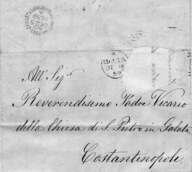 Al M. Sig.
Reverendissimo Padre Vicario
della Chiesa di S. Pietro in Galata
Costantinopoli